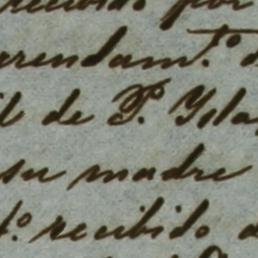 recibido por
arendam.to d
l de P. Ysla
su madre
t.o recibido d